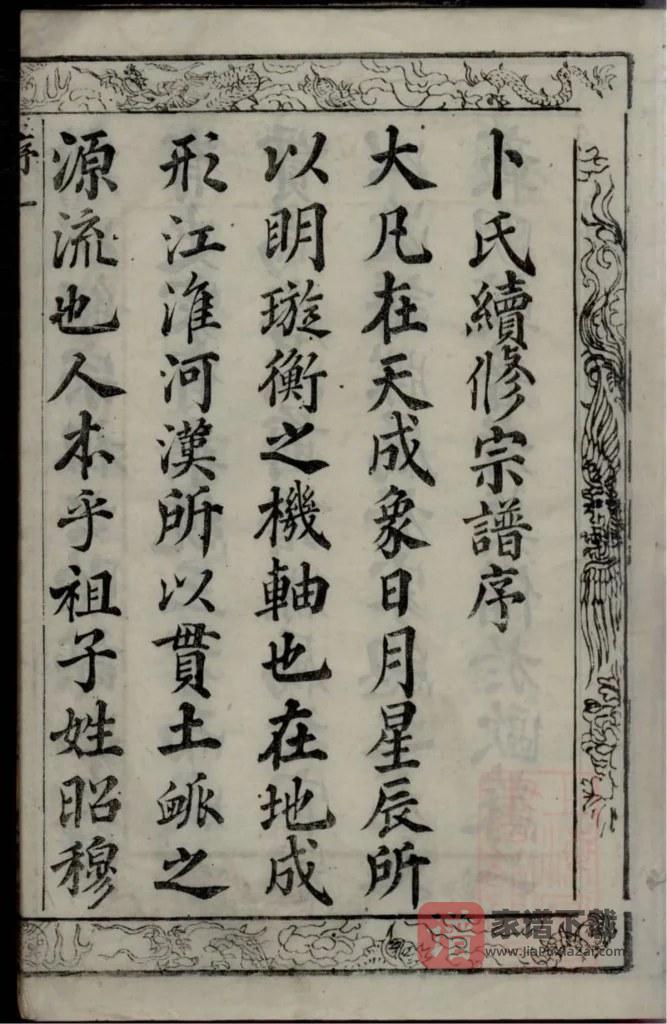 卜氏續修宗譜序
大凡在天成象日月星辰所
以明璇衡之機軸也在地成
形江淮河漢所以貫土脈之
源流也人本乎祖子姓昭穆
序一
家谱下载
www.JiaPuXiaZai.com